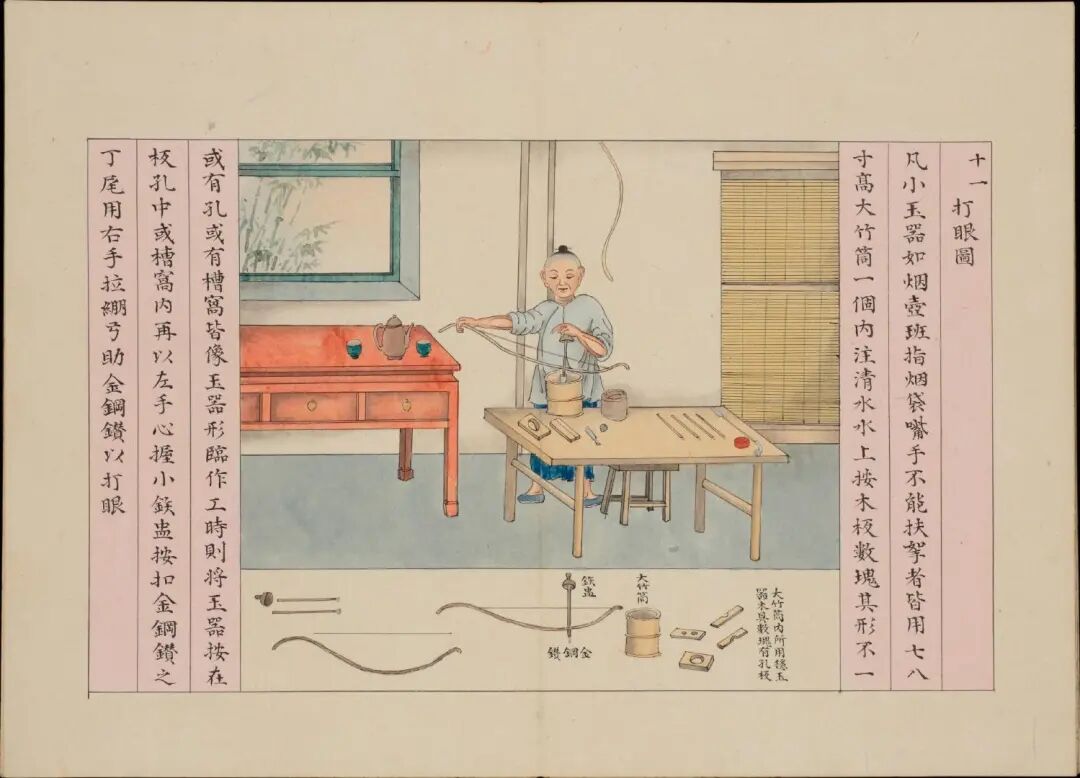 十一 打眼圖
凡小玉器如烟壺班指烟袋嘴手不能扶拏者皆用七八
寸髙大竹筒一個内注清水水上按木板數塊其形不一
或有孔或有槽窩皆像玉器形臨作工時則將玉器按在
板孔中或槽窩内再以左手心握小鉄盅按扣金鋼鑽之
丁尾用右手拉綳弓助金鋼鑽以打眼
大竹筒内所用穩玉
器木具數塊有孔板
大竹筒
鉄盅
金鋼鑽